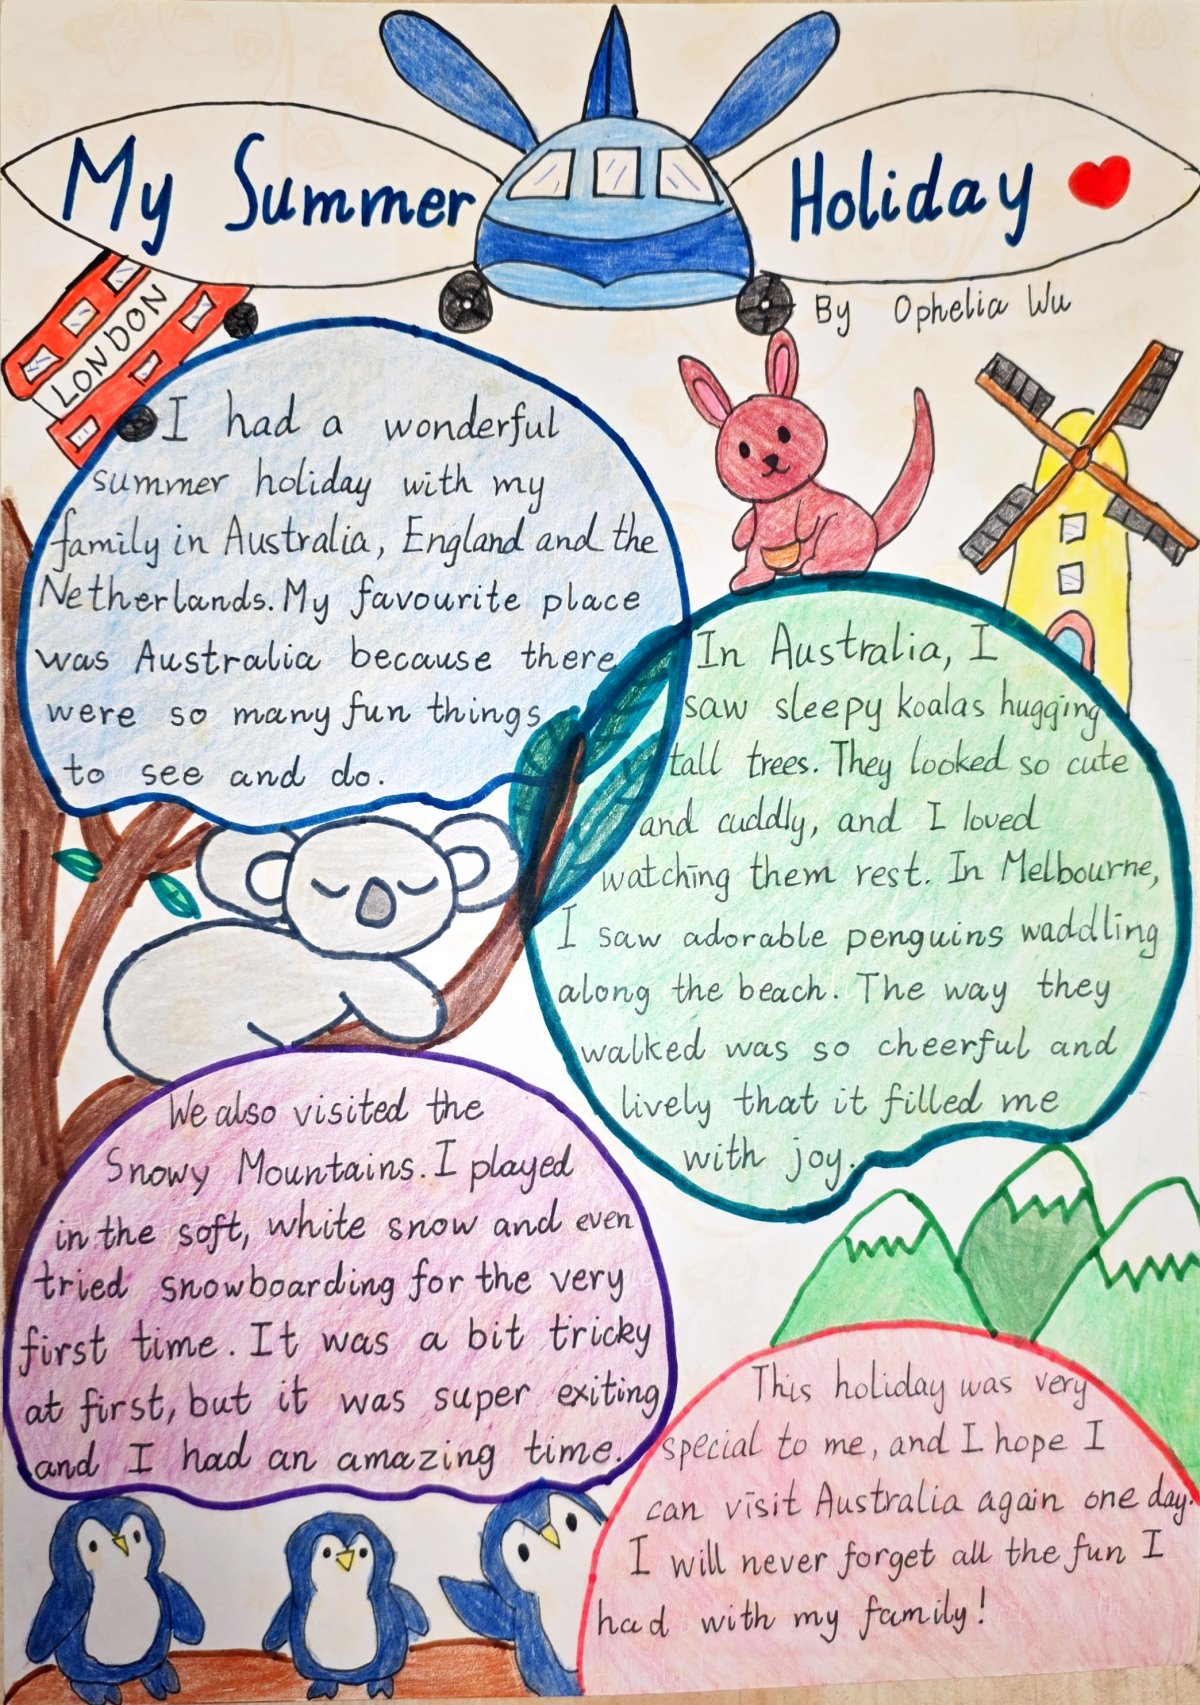 My Summer Holiday
By Ophelia Wu
LONDON
I had a wonderful
summer holiday with my
family in Australia, England and the
Netherlands. My favourite place
was Australia because there
were so many fun things
to see and do.
In Australia, I
saw sleepy koalas hugging
tall trees. They looked so cute
and cuddly, and I loved
watching them rest. In Melbourne,
I saw adorable penguins waddling
along the beach. The way they
walked was so cheerful and
lively that it filled me
with joy.
We also visited the
Snowy Mountains. I played
in the soft, white snow and even
tried snowboarding for the very
first time. It was a bit tricky
at first, but it was super exiting
and I had an amazing time.
This holiday was very
special to me, and I hope I
can visit Australia again one day.
I will never forget all the fun I
had with my family!